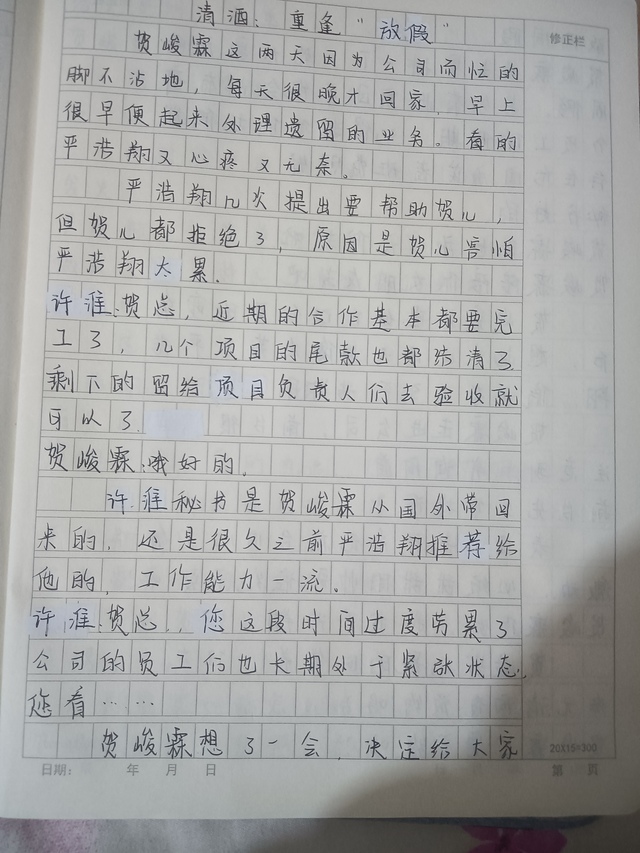 清酒：重逢“放假”
修正栏
贺峻霖这两天因为公司而忙的
脚不沾地，每天很晚才回家，早上
很早便起来处理遗留的业务。看的
严浩翔又心疼又无奈。
严浩翔几次提出要帮助贺儿，
但贺儿都拒绝了，原因是贺儿害怕
严浩翔太累.
许淮:贺总，近期的合作基本都要完
工了，几个项目的尾款也都结清了
剩下的留给项目负责人们去验收就
可以了
贺峻霖:哦好的.
许淮秘书是贺峻霖从国外带回
来的，还是很久之前严浩翔推荐给
他的，工作能力一流.
许淮:贺总，您这段时间过度劳累了
公司的员工们也长期处于紧张状态,
您看……
贺峻霖想了一会，决定给大家
20X15=300
日期： 年 月 日 第 页